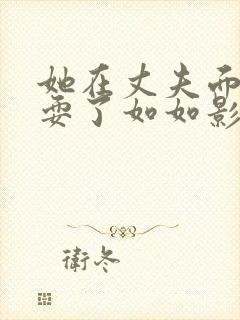 她在丈夫而
耍了如如影
衛冬